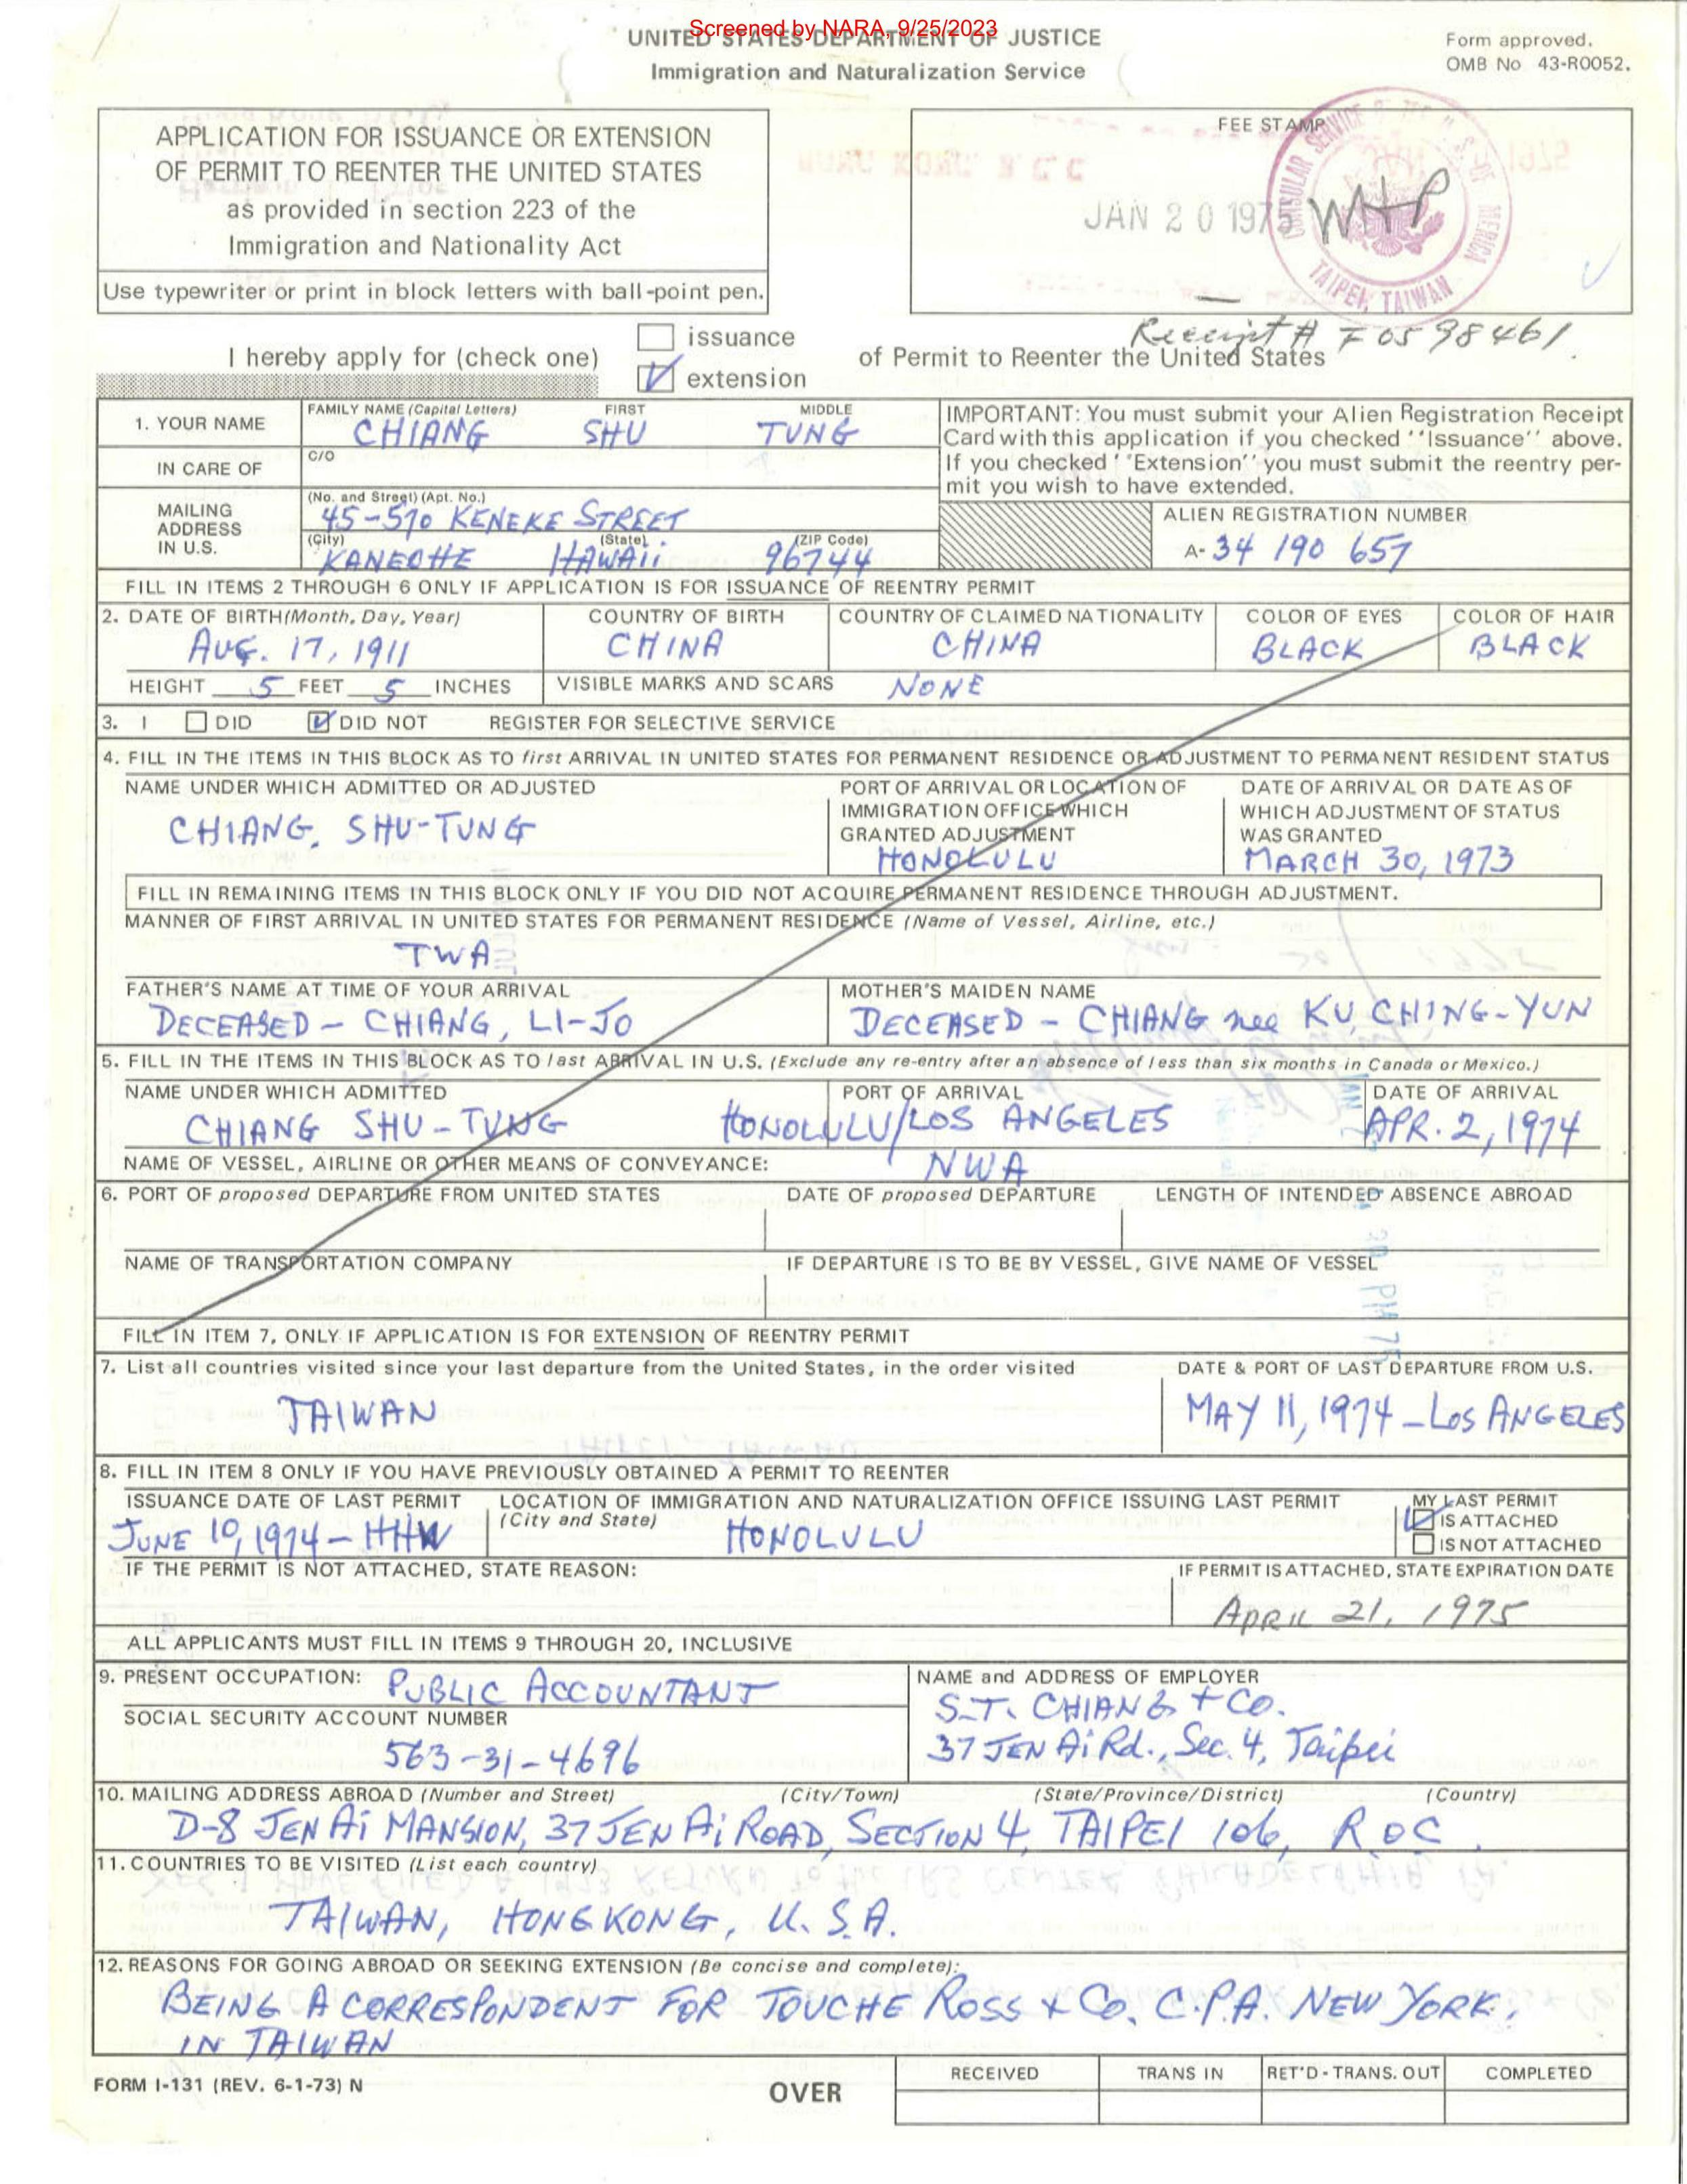 Screened by NARA, 9/25/2023
UNITED STATES DEPARTMENT OF JUSTICE
Immigration and Naturalization Service
Form approved.
OMB No 43-R0052.
APPLICATION FOR ISSUANCE OR EXTENSION
OF PERMIT TO REENTER THE UNITED STATES
as provided in section 223 of the
Immigration and Nationality Act
Use typewriter or print in block letters with ball-point pen.
FEE STAMP
JAN 20 1975
CONSULAR SERVICE
TAIPEI, TAIWAN
WHP
Receipt # F0598461.
I hereby apply for (check one)
issuance
extension
of Permit to Reenter the United States
1. YOUR NAME
FAMILY NAME (Capital Letters) FIRST MIDDLE
CHIANG SHU TUNG
IN CARE OF
C/O
MAILING ADDRESS IN U.S.
(No. and Street) (Apt. No.)
45-570 KENEKE STREET
(City) (State) (ZIP Code)
KANEOHE HAWAii 96744
IMPORTANT: You must submit your Alien Registration Receipt
Card with this application if you checked ''Issuance'' above.
If you checked ''Extension'' you must submit the reentry per-
mit you wish to have extended.
ALIEN REGISTRATION NUMBER
A- 34 190 657
FILL IN ITEMS 2 THROUGH 6 ONLY IF APPLICATION IS FOR ISSUANCE OF REENTRY PERMIT
2. DATE OF BIRTH (Month, Day, Year) COUNTRY OF BIRTH COUNTRY OF CLAIMED NATIONALITY COLOR OF EYES COLOR OF HAIR
AUG. 17, 1911 CHINA CHINA BLACK BLACK
HEIGHT 5 FEET 5 INCHES VISIBLE MARKS AND SCARS NONE
3. I DID DID NOT REGISTER FOR SELECTIVE SERVICE
4. FILL IN THE ITEMS IN THIS BLOCK AS TO first ARRIVAL IN UNITED STATES FOR PERMANENT RESIDENCE OR ADJUSTMENT TO PERMANENT RESIDENT STATUS
NAME UNDER WHICH ADMITTED OR ADJUSTED
CHIANG, SHU-TUNG
PORT OF ARRIVAL OR LOCATION OF
IMMIGRATION OFFICE WHICH
GRANTED ADJUSTMENT
HONOLULU
DATE OF ARRIVAL OR DATE AS OF
WHICH ADJUSTMENT OF STATUS
WAS GRANTED
MARCH 30, 1973
FILL IN REMAINING ITEMS IN THIS BLOCK ONLY IF YOU DID NOT ACQUIRE PERMANENT RESIDENCE THROUGH ADJUSTMENT.
MANNER OF FIRST ARRIVAL IN UNITED STATES FOR PERMANENT RESIDENCE (Name of Vessel, Airline, etc.)
TWA
FATHER'S NAME AT TIME OF YOUR ARRIVAL
DECEASED - CHIANG, LI-JO
MOTHER'S MAIDEN NAME
DECEASED - CHIANG nee KU, CHING-YUN
5. FILL IN THE ITEMS IN THIS BLOCK AS TO last ARRIVAL IN U.S. (Exclude any re-entry after an absence of less than six months in Canada or Mexico.)
NAME UNDER WHICH ADMITTED PORT OF ARRIVAL DATE OF ARRIVAL
CHIANG SHU-TUNG HONOLULU/LOS ANGELES APR. 2, 1974
NAME OF VESSEL, AIRLINE OR OTHER MEANS OF CONVEYANCE: NWA
6. PORT OF proposed DEPARTURE FROM UNITED STATES DATE OF proposed DEPARTURE LENGTH OF INTENDED ABSENCE ABROAD
NAME OF TRANSPORTATION COMPANY IF DEPARTURE IS TO BE BY VESSEL, GIVE NAME OF VESSEL
FILL IN ITEM 7, ONLY IF APPLICATION IS FOR EXTENSION OF REENTRY PERMIT
7. List all countries visited since your last departure from the United States, in the order visited
TAIWAN
DATE & PORT OF LAST DEPARTURE FROM U.S.
MAY 11, 1974 - LOS ANGELES
8. FILL IN ITEM 8 ONLY IF YOU HAVE PREVIOUSLY OBTAINED A PERMIT TO REENTER
ISSUANCE DATE OF LAST PERMIT
JUNE 10, 1974 - HHW
LOCATION OF IMMIGRATION AND NATURALIZATION OFFICE ISSUING LAST PERMIT
(City and State)
HONOLULU
MY LAST PERMIT
IS ATTACHED
IS NOT ATTACHED
IF THE PERMIT IS NOT ATTACHED, STATE REASON:
IF PERMIT IS ATTACHED, STATE EXPIRATION DATE
APRIL 21, 1975
ALL APPLICANTS MUST FILL IN ITEMS 9 THROUGH 20, INCLUSIVE
9. PRESENT OCCUPATION: PUBLIC ACCOUNTANT
SOCIAL SECURITY ACCOUNT NUMBER
563-31-4696
NAME and ADDRESS OF EMPLOYER
S.T. CHIANG + CO.
37 JEN Ai Rd., Sec. 4, Taipei
10. MAILING ADDRESS ABROAD (Number and Street) (City/Town) (State/Province/District) (Country)
D-8 JEN Ai MANSION, 37 JEN Ai ROAD, SECTION 4, TAIPEI 106, ROC.
11. COUNTRIES TO BE VISITED (List each country)
TAIWAN, HONGKONG, U.S.A.
12. REASONS FOR GOING ABROAD OR SEEKING EXTENSION (Be concise and complete):
BEING A CORRESPONDENT FOR TOUCHE ROSS + Co. C.P.A. NEW YORK,
IN TAIWAN
FORM I-131 (REV. 6-1-73) N
OVER
RECEIVED TRANS IN RET'D - TRANS. OUT COMPLETED